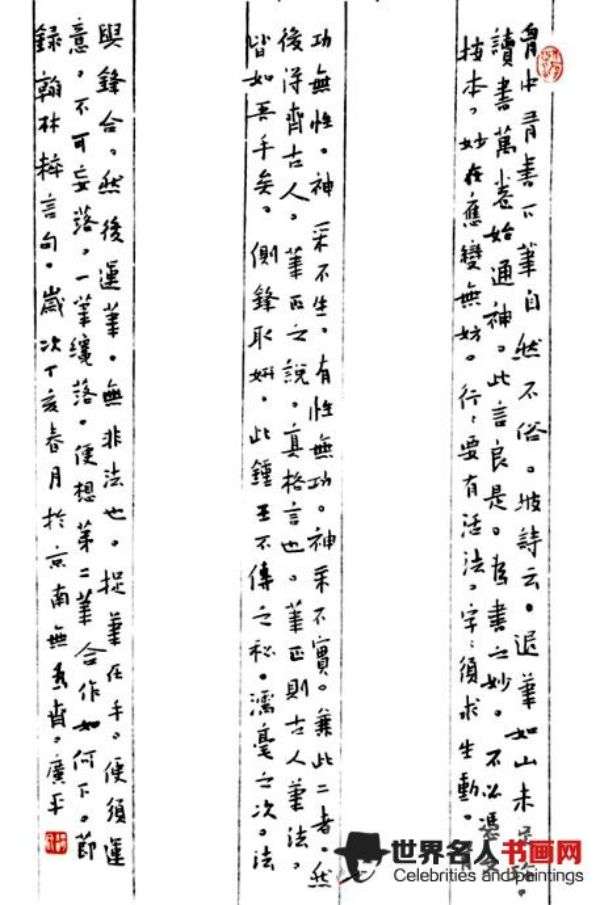 胸中有書下筆自然不俗。坡詩云。退筆如山未足珍。
讀書萬卷始通神。此言良是。為書之妙。不必憑文
按本。妙在應變無妨。行〻要有活法。字〻須求生動。有
功無性。神采不生。有性無功。神采不實。兼此二者。然
後得齊古人。筆正之說。真格言也。筆正則古人筆法。
皆如吾手矣。側鋒取妍。此鍾王不傳之秘。濡毫之次。法
與鋒合。然後運筆。無非法也。捉筆在手。便須運
意。不可妄落。一筆纔落。便想第二筆合作如何下。節
錄翰林粹言句。歲次丁亥春月於京南無齋。廣平
世界名人书画网
Celebrities and paintings